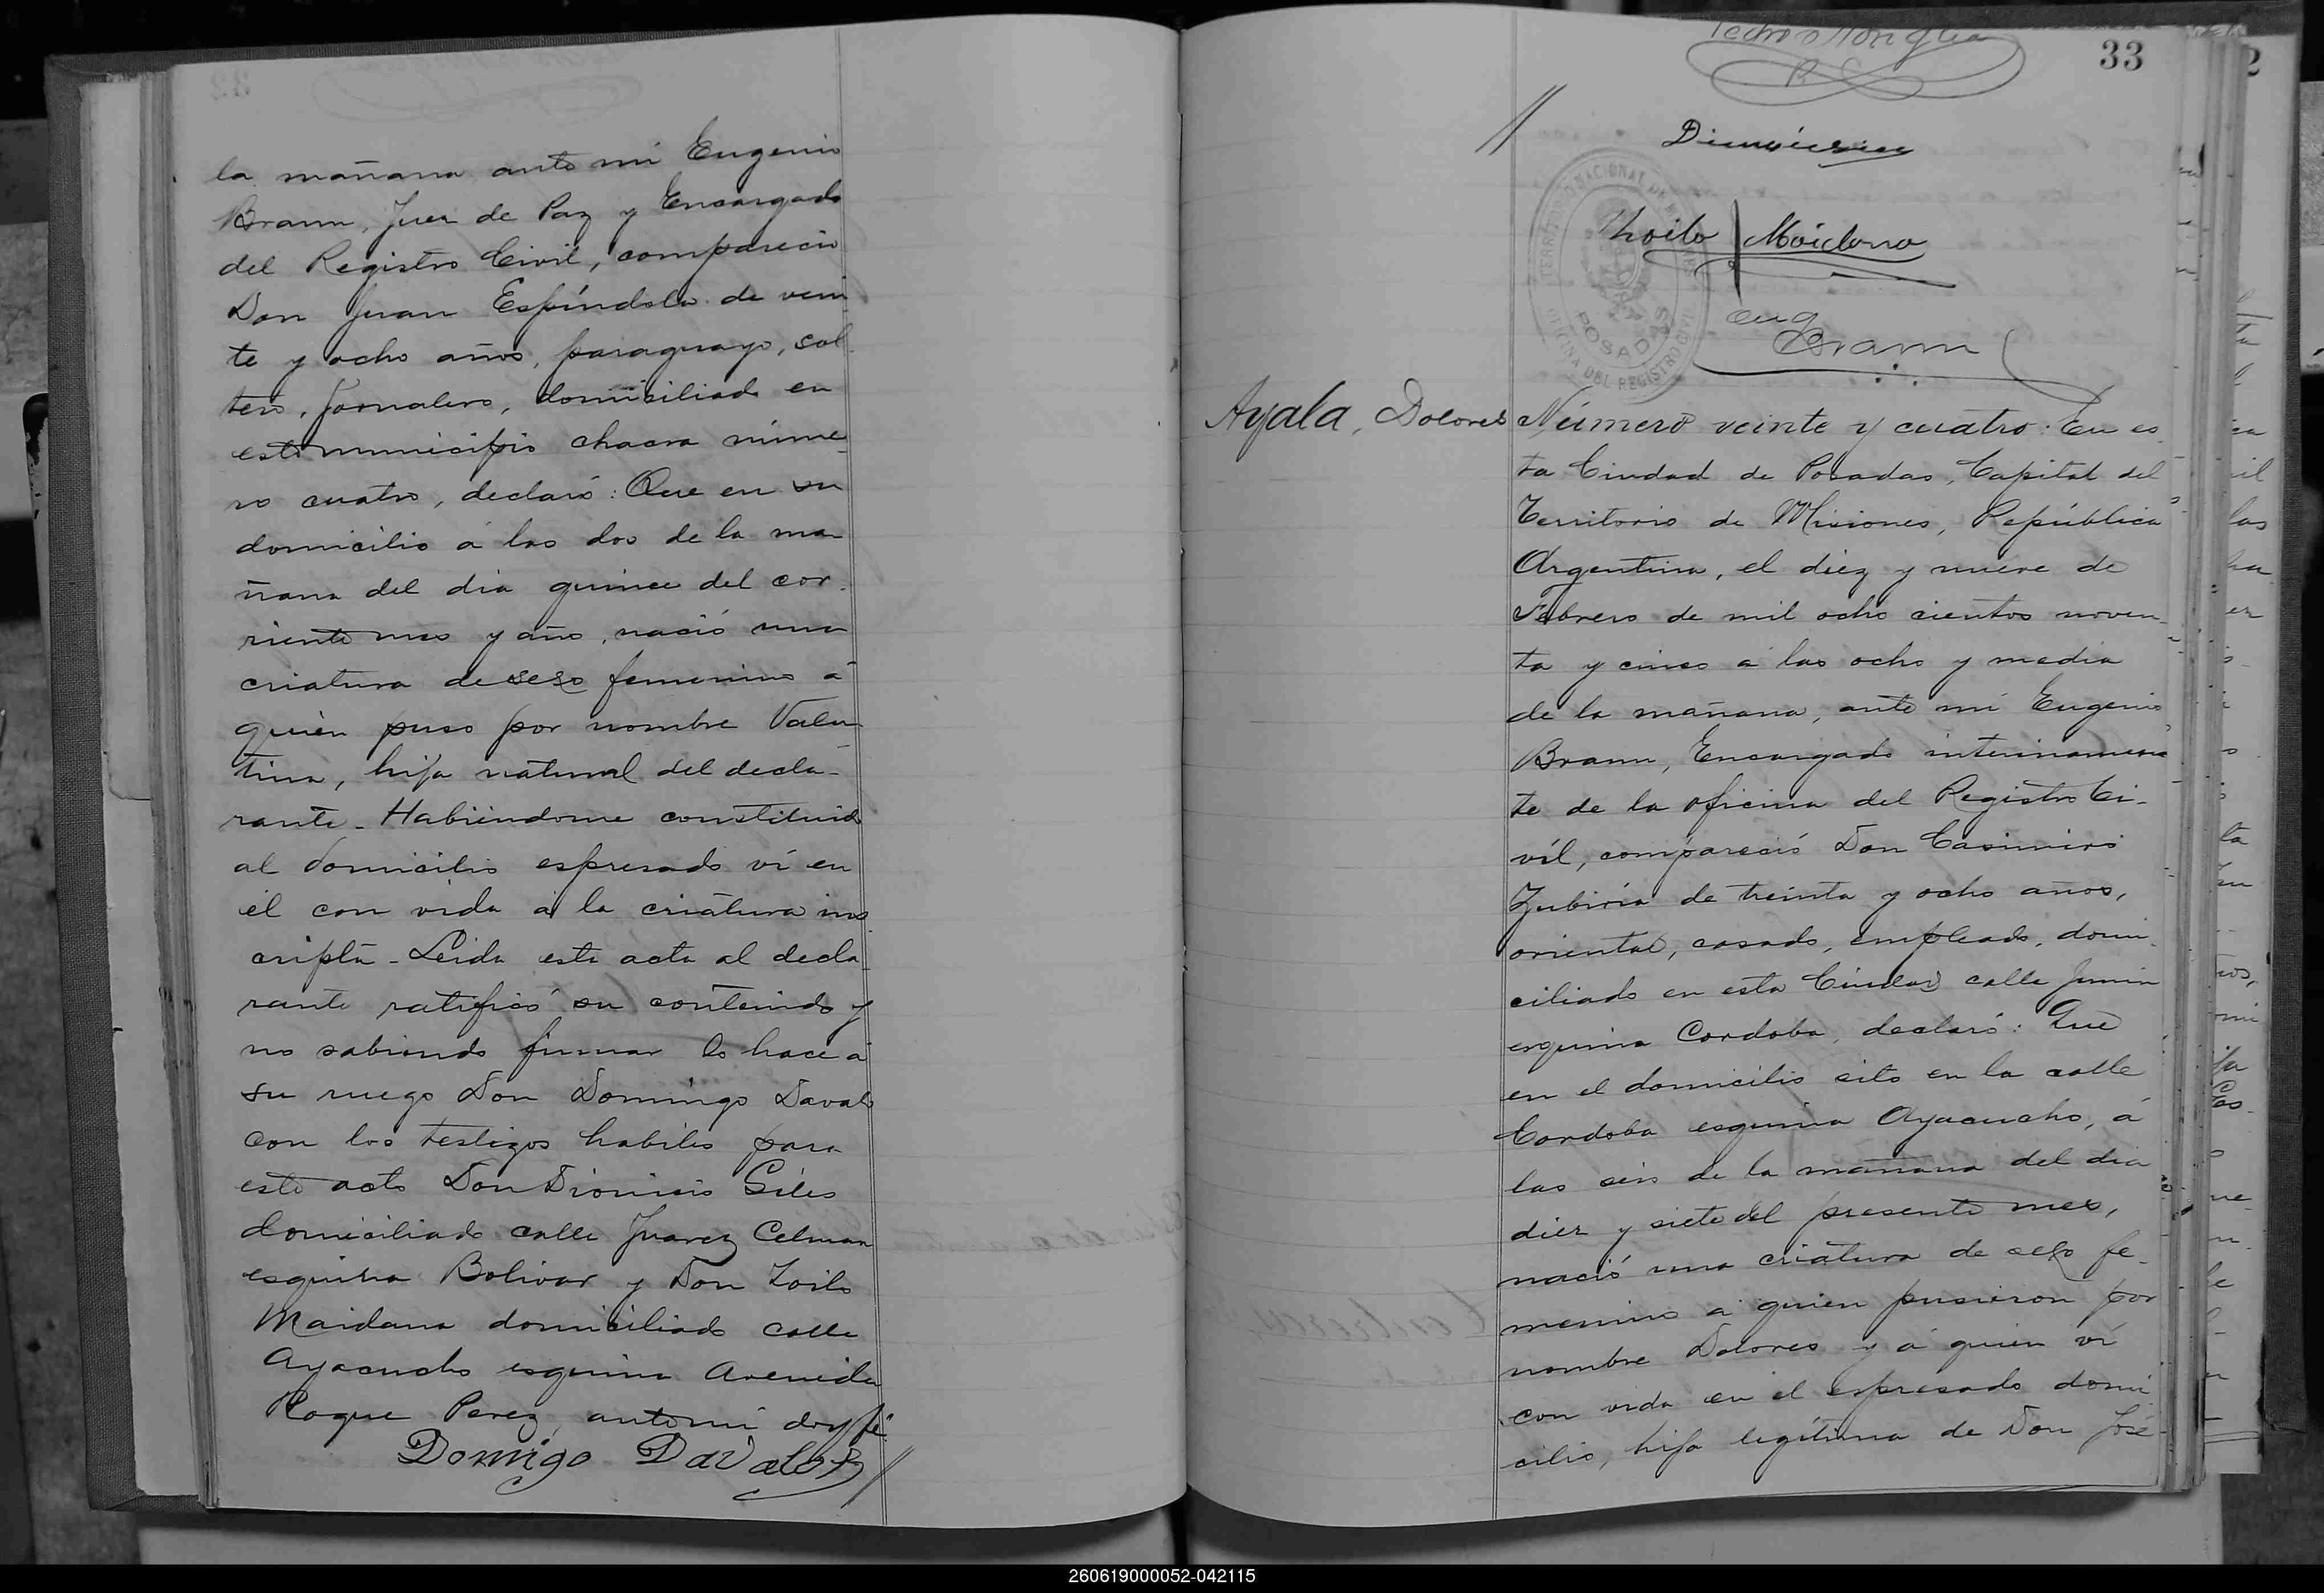 la mañana ante mi Eugenio
Braun, Juez de Paz y Encargado
del Registro Civil, compareció
Don Juan Espíndola de vein
te y ocho años, paraguayo, sol
tero, jornalero, domiciliado en
este municipio chacra núme
ro cuatro, declaró: Que en su
domicilio á las dos de la ma
ñana del dia quince del cor
riente mes y año, nació una
criatura de sexo femenino á
quién puso por nombre Valen
tina, hija natural del decla-
rante. Habiéndome constituido
al domicilio espresado ví en
él con vida á la criatura ins
cripta - Leida esta acta al decla
rante ratificó su contenido y
no sabiendo firmar lo hace á
su ruego Don Domingo Davalo
con los testigos habiles para
este acto Don Dionisio Giles
domiciliado calle Juarez Celman
esquina Bolivar y Don Zoilo
Maidana domiciliado calle
Ayacucho esquina Avenida
Roque Perez, ante mi doy fé
Domigo Davalos
33
Zhoilo Maidana
Eug
Braun
TERRITORIO NACIONAL DE MISIONES
POSADAS
OFICINA DEL REGISTRO CIVIL
Ayala, Dolores
Número veinte y cuatro: En es
ta Ciudad de Posadas, Capital del
Territorio de Misiones, República
Argentina, el diez y nueve de
Febrero de mil ocho cientos noven
ta y cinco á las ocho y media
de la mañana, ante mí Eugenio
Braun, Encargado interinamen
te de la oficina del Registro Ci-
vil, compareció Don Casimiro
Zubiria de treinta y ocho años,
oriental, casado, empleado, domi
ciliado en esta Ciudad calle Junin
esquina Cordoba, declaró: Que
en el domicilio sito en la calle
Cordoba esquina Ayacucho, á
las seis de la mañana del dia
diez y siete del presente mes,
nació una criatura de sexo fe-
menino á quien pusieron por
nombre Dolores y á quien ví
con vida en el espresado domi
cilio, hija legítima de Don José
260619000052-042115